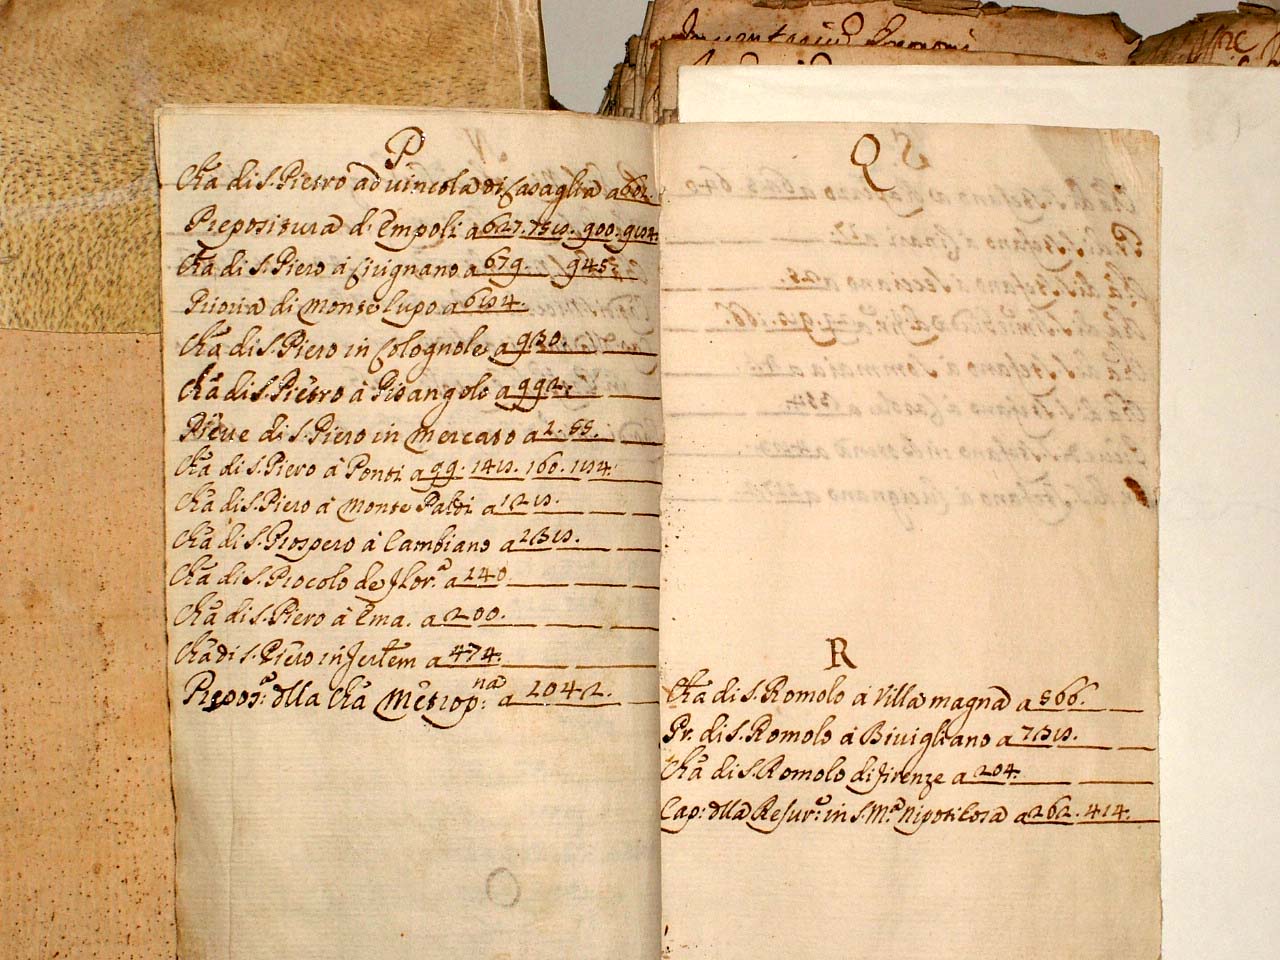 P
Chã di S. Pietro ad vincola di Casaglia a 602.
Prepositura d'Empoli a 627. 
Chã di S. Piero à Civignano a 679. 945.
Prioria di Monte Lupo a
Chã di S. Piero in Colognole a 930.
Chã di S. Pietro à Pisangolo a 992.
Pieve di S. Piero in Mercato a
Chã di S. Piero à Ponti a 99.
Chã di S. Piero à Monte Paldi a
Chã di S. Prospero à Cambiano a
Chã di S. Procolo de Flor.ª a 240
Chã di S. Piero à Ema. a 200.
Chã di S. Piero in Jerlem a 474.
Prepos.ª dlla Chã Metrop:na a 2042.
Q
R
Chã di S. Romolo à Villa magna a 566.
Pr. di S. Romolo à Bivigliano a
Chã di S. Romolo di Firenze a 204.
Cap: dlla Resur.e in S. M.ª Nipotecosa a 262. 414.